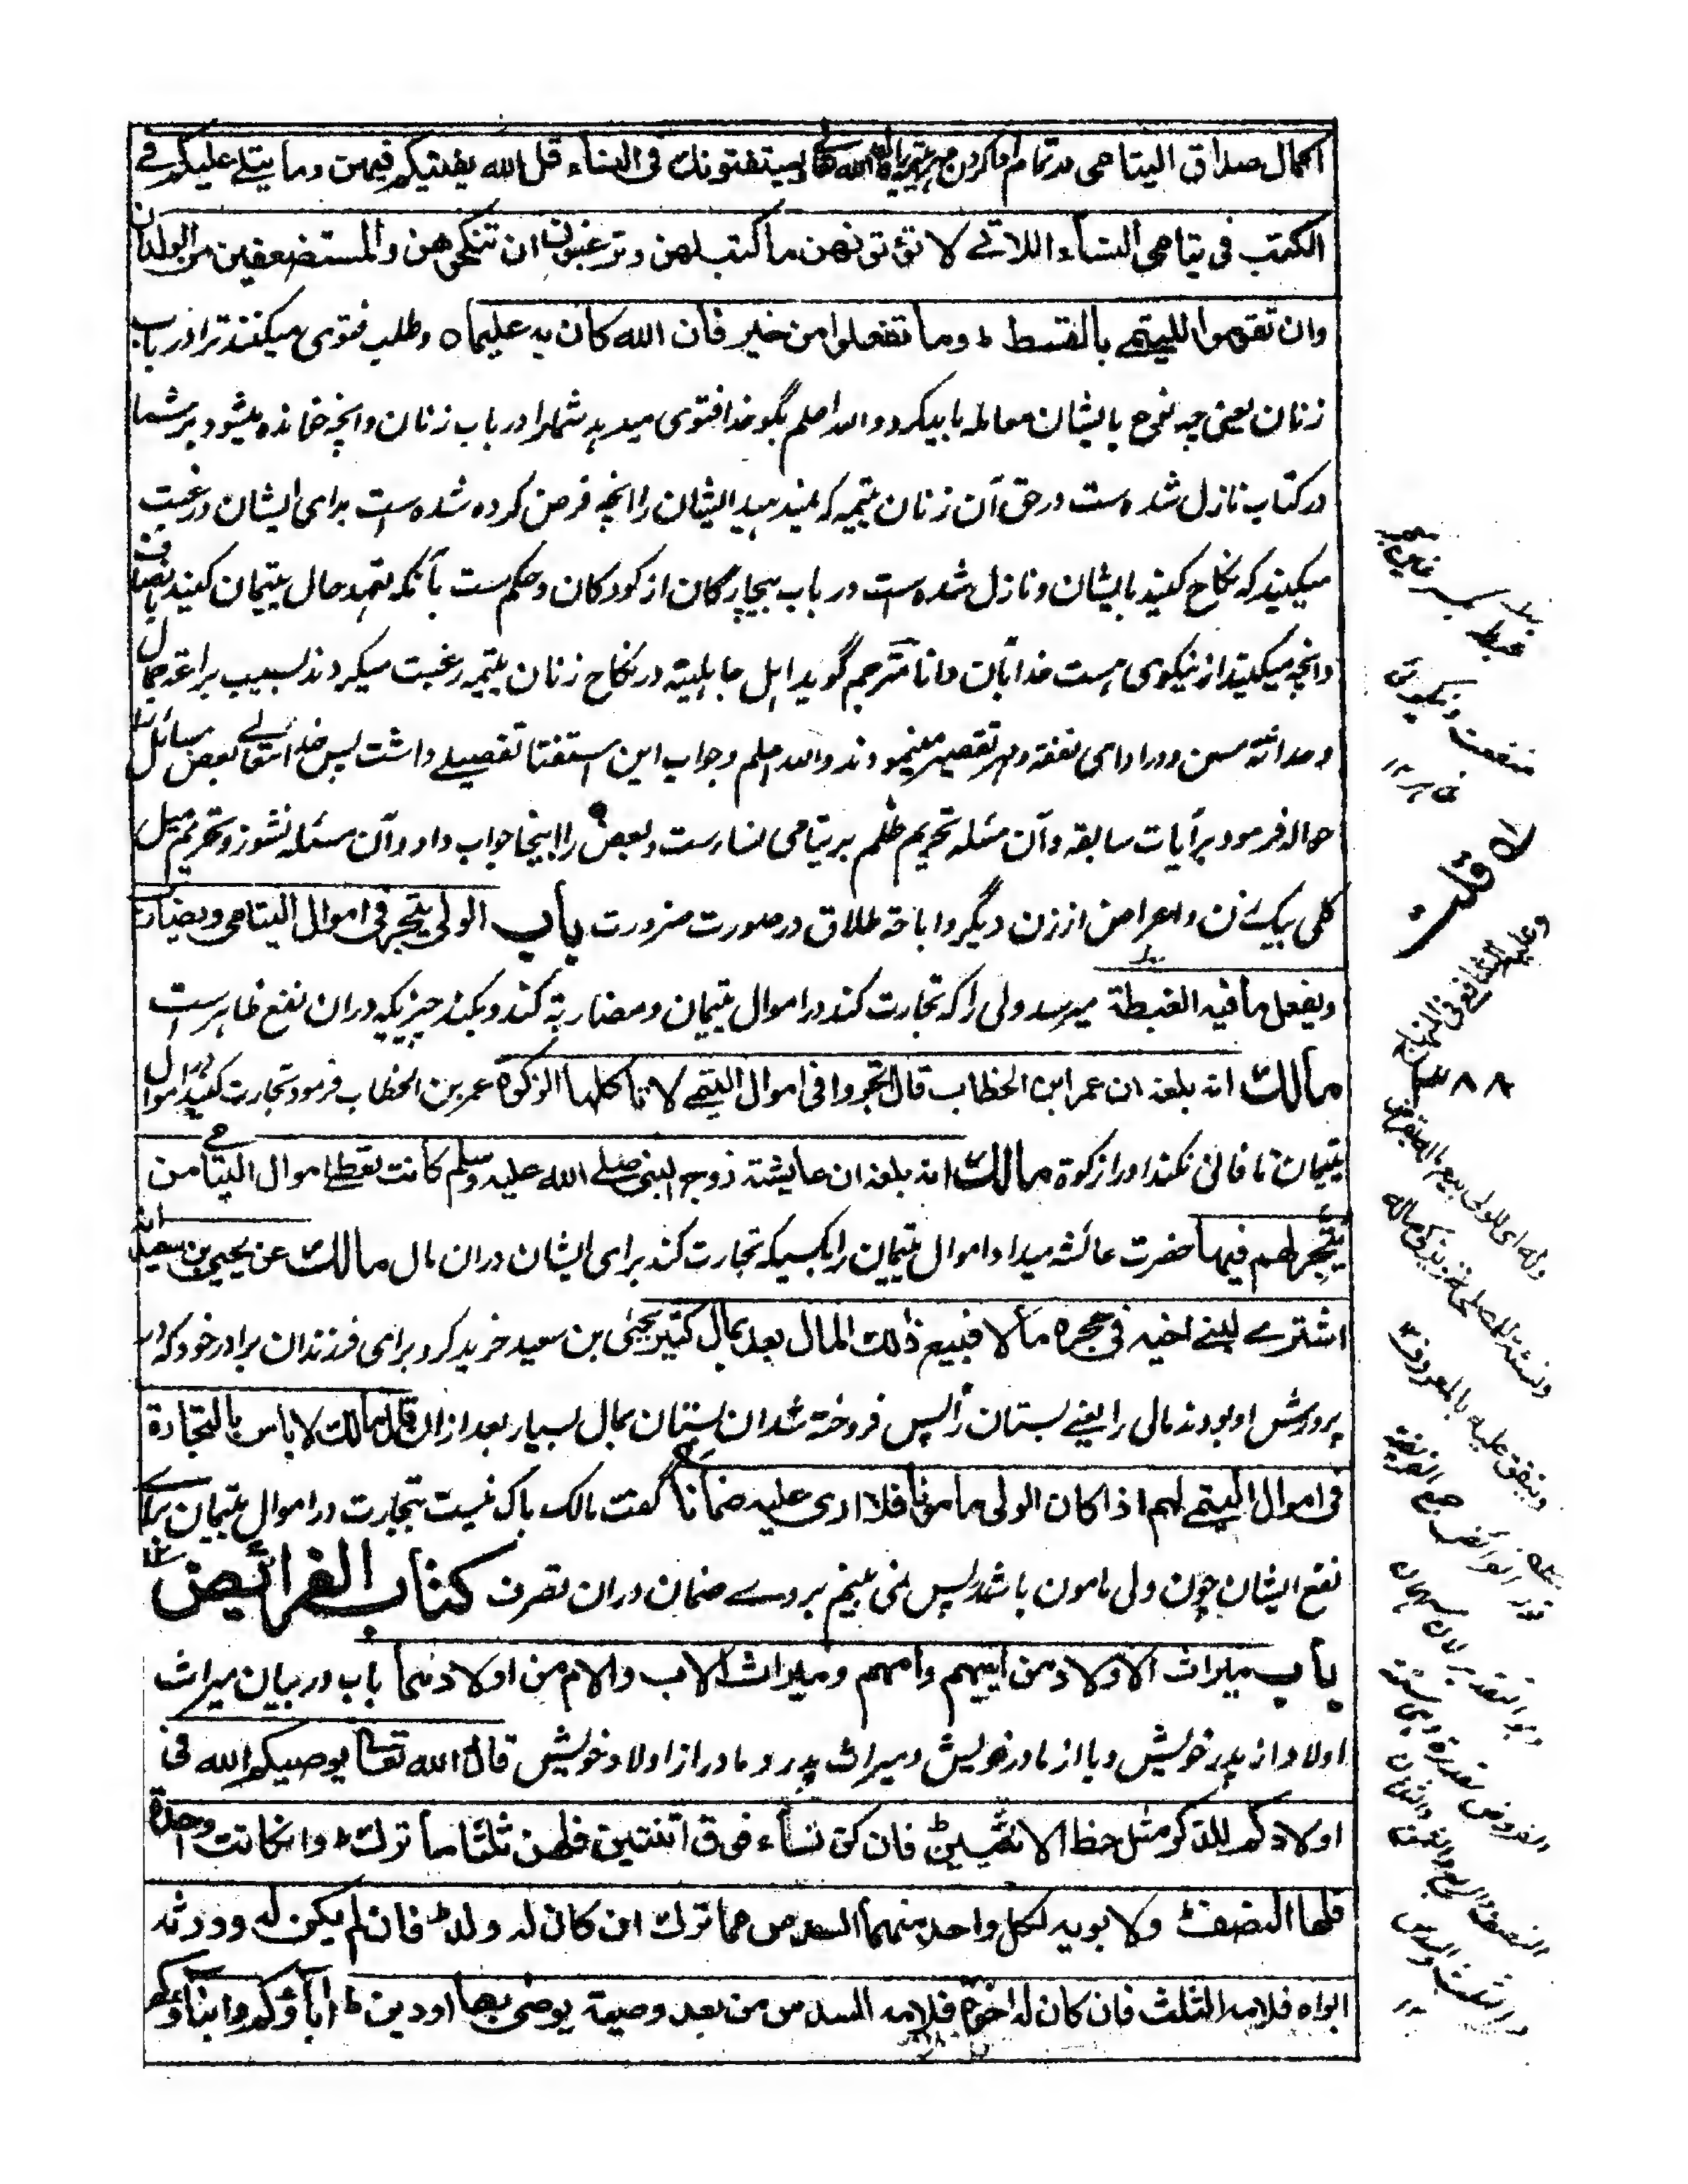 اكمال صداق اليتامى در تمام ادا كردن مهر يتيمه قال الله تعالى ويستفتونك فى النساء قل الله يفتيكم فيهن وما يتلے عليكم فے
الكتب فى يتامى النساء اللاتے لا تؤتونهن ما كتب لهن وترغبون ان تنكحوهن والمستضعفين من الولدان
وان تقوموا لليتمے بالقسط ط وما تفعلوا من خير فان الله كان به عليما ه وطلب فتوى ميكنند ترا در باب
زنان يعنى چه نوع بايشان معامله بايد كرد والله اعلم بگو خدا فتوى ميدهد شمارا در باب زنان وانچه خوانده ميشود بر شما
در كتاب نازل شده ست در حق آن زنان يتيمه كه نميدهيد ايشان را انچه فرض كرده شده ست براى ايشان ورغبت
ميكنيد كه نكاح كنيد بايشان ونازل شده ست در باب بيچارگان از كودكان وحكم ست بآنكه تعهد حال يتيمان كنيد بانصاف
وانچه ميكنيد از نيكوى هست خدا بآن دانا مترجم گويد اهل جاهليته در نكاح زنان يتيمه رغبت ميكردند بسبب براعة جمال
وحداثة سن ودر اداى نفقه ومهر تقصير مينمودند والله اعلم وجواب اين استفتا تفصيلے داشت پس خدا تعالے بعض مسائل را
حواله فرمود بر آيات سابقه وآن مسئله تحريم ظلم بر يتامى نساء ست وبعض را اينجا جواب داد وآن مسئله نشوز وتحريم ميل
كلى بيك زن واعراض از زن ديگر واباحة طلاق در صورت ضرورت باب الولى يتجر فى اموال اليتامى ويضارب
ويفعل ما فيه الغبطة ميرسد ولى را كه تجارت كند در اموال يتيمان ومضاربة كند وبكند چيزيكه دران نفع ظاهر ست
مالك انه بلغه ان عمر ابن الخطاب قال اتجروا فى اموال اليتمے لا تاكلها الزكوة عمر بن الخطاب فرمود تجارت كنيد در اموال
يتيمان تا فانى نكند اورا زكوة مالك انه بلغه ان عايشة زوج النبى صلے الله عليه وسلم كانت تعطے اموال اليتامے من
يتجر لهم فيها حضرت عائشه ميداد اموال يتيمان را بكسيكه تجارت كند براى ايشان دران مال مالك عن يحيى بن سعيد انه
اشترے لبنے اخيه فى حجره مالا فبيع ذلك المال بعد بمال كثير يحيى بن سعيد خريد كرد براى فرزندان برادر خود كه در
پرورش او بودند مالى را يعنے بستان را پس فروخته شد ان بستان بمال بسيار بعد ازان قال مالك لا باس بالتجارة
فى اموال اليتمے لهم اذا كان الولى مامونا فلا ارى عليه ضمانا گفت مالك باك نيست بتجارت در اموال يتيمان براے
نفع ايشان چون ولى مامون باشد پس نمى بينم بر وے ضمان دران تصرف كتاب الفرائيض
باب ميراث الاولاد من ابيهم وامهم وميراث الاب والام من اولادهما باب در بيان ميراث
اولاد از پدر خويش ويا از مادر خويش وميراث پدر ومادر از اولاد خويش قال الله تعالے يوصيكم الله فى
اولادكم للذكر مثل حظ الانثيين ط فان كن نساء فوق اثنتين فلهن ثلثا ما ترك ط وان كانت واحدة
فلها النصف ط ولابويه لكل واحد منهما السدس مما ترك ان كان له ولد ط فان لم يكن له ولد وورثه
ابواه فلامه الثلث فان كان له اخوة فلامه السدس من بعد وصية يوصى بها اودين ط آباؤكم وابناؤكم
وعليه الشافعى
وله اى للولى بيع
وينفق عليه بالمعروف